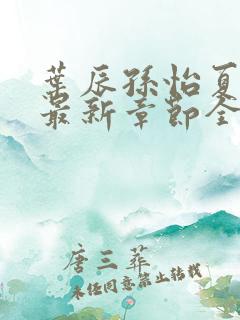 葉辰孫怡夏
最新章節全
唐三葬
未经同意禁止转载